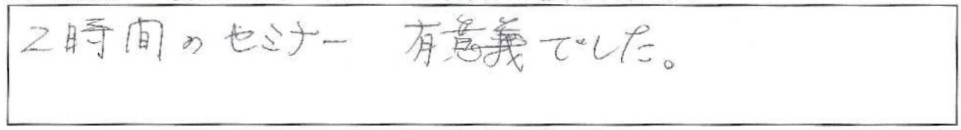 2時間のセミナー 有意義でした。